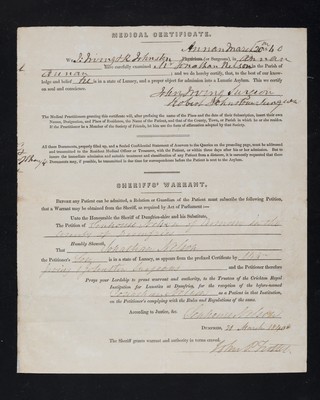 MEDICAL CERTIFICATE.
Annan March 20 40
We J. Irving & R. Johnston Physicians (or Surgeons), in Annan
have carefully examined Mr. Jonathan Nelson in the Parish of
Annan; and we do hereby certify, that, to the best of our know-
ledge and belief, he is in a state of Lunacy, and a proper object for admission into a Lunatic Asylum. This we certify
on soul and conscience.
John Irving Surgeon
Robert Johnston Surgeon
The Medical Practitioner granting this certificate will, after prefixing the name of the Place and the date of their Subscription, insert their own
Names, Designation, and Place of Residence, the Name of the Patient, and that of the County, Town, or Parish in which he or she resides.
If the Practitioner be a Member of the Society of Friends, he can use the form of affirmation adopted by that Society.
All these Documents, properly filled up, and a Sealed Confidential Statement of Answers to the Queries on the preceding page, must be addressed
and transmitted to the Resident Medical Officer or Treasurer, with the Patient, or within three days after his or her admission. But to
insure the immediate admission and suitable treatment and classification of any Patient from a distance, it is earnestly requested that these
Documents may, if possible, be transmitted in due time for correspondence before the Patient is sent to the Asylum.
SHERIFFS' WARRANT.
BEFORE any Patient can be admitted, a Relation or Guardian of the Patient must subscribe the following Petition,
that a Warrant may be obtained from the Sheriff, as required by Act of Parliament:—
Unto the Honourable the Sheriff of Dumfries-shire and his Substitute,
The Petition of Nelson of Annan in the
County of Dumfries
Humbly Sheweth,
That Jonathan Nelson
the Petitioner's Son is in a state of Lunacy, as appears from the prefixed Certificate by Mr.
Irving & Johnston Surgeons and the Petitioner therefore
Prays your Lordship to grant warrant and authority, to the Trustees of the Crichton Royal
Institution for Lunatics at Dumfries, for the reception of the before-named
Jonathan Nelson as a Patient in that Institution,
on the Petitioner's complying with the Rules and Regulations of the same.
According to Justice, &c.
Nelson
DUMFRIES, 21 March 1840
The Sheriff grants warrant and authority in terms craved.